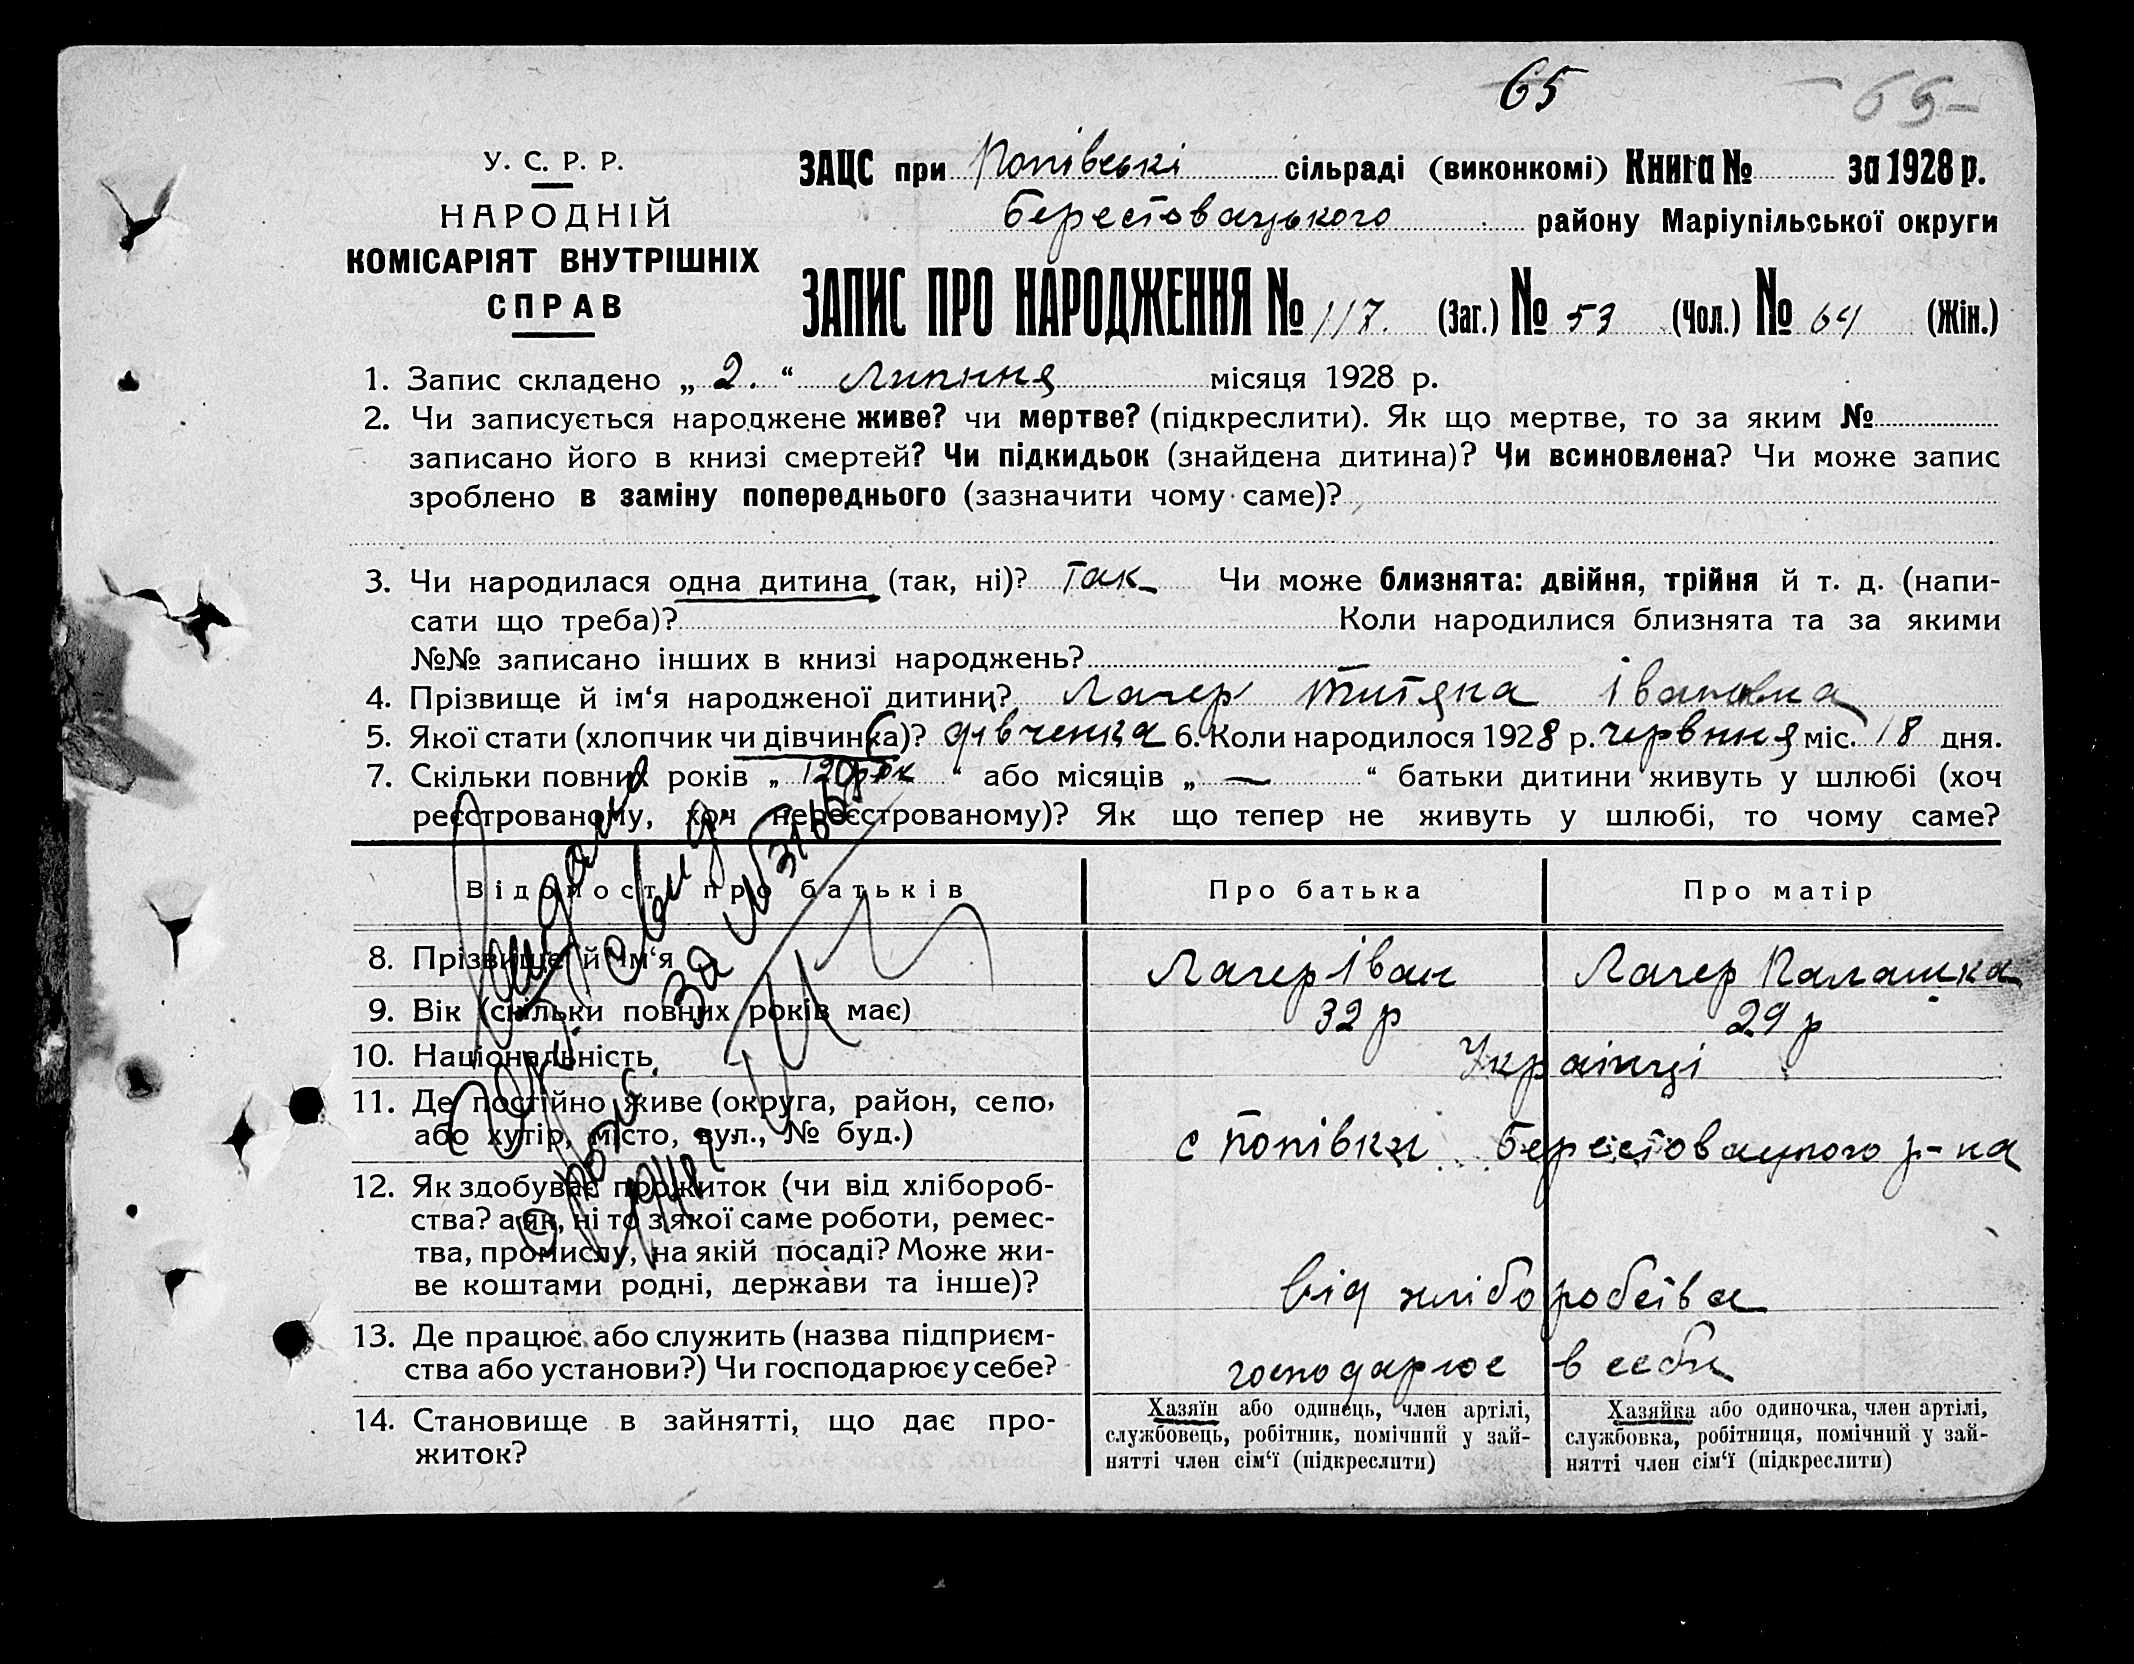 65
- 65 -
У. С. Р. Р.
НАРОДНІЙ
КОМІСАРІЯТ ВНУТРІШНІХ
СПРАВ
ЗАЦС при Попівські сільраді (виконкомі) Книга № за 1928 р.
Берестовацького району Маріупільської округи
ЗАПИС ПРО НАРОДЖЕННЯ № 117. (Заг.) № 53 (Чол.) № 64 (Жін.)
1. Запис складено „ 2. “ Липння місяця 1928 р.
2. Чи записується народжене живе? чи мертве? (підкреслити). Як що мертве, то за яким №
записано його в книзі смертей? Чи підкидьок (знайдена дитина)? Чи всиновлена? Чи може запис
зроблено в заміну попереднього (зазначити чому саме)?
3. Чи народилася одна дитина (так, ні)? Так Чи може близнята: двійня, трійня й т. д. (напи-
сати що треба)? Коли народилися близнята та за якими
№№ записано інших в книзі народжень? —
4. Прізвище й ім‘я народженої дитини? Лагер Титяна Івановна
5. Якої стати (хлопчик чи дівчинка)? дівченка 6. Коли народилося 1928 р. червння міс. 18 дня.
7. Скільки повних років „ 12 рок “ або місяців „ — “ батьки дитини живуть у шлюбі (хоч
реєстрованому, хоч нереєстрованому)? Як що тепер не живуть у шлюбі, то чому саме?
Відомості про батьків Про батька Про матір
8. Прізвище й ім‘я Лагер Іван Лагер Палашка
9. Вік (скільки повних років має) 32 р 29 р
10. Національність Українці
11. Де постійно живе (округа, район, село,
або хутір, місто, вул., № буд.) с Попівки Берестовацкого р-на
12. Як здобуває прожиток (чи від хлібороб-
ства? а як, ні то з якої саме роботи, ремес-
тва, промислу, на якій посаді? Може жи-
ве коштами родні, держави та інше)? Від хліборобства
13. Де працює або служить (назва підприєм-
ства або установи?) Чи господарює у себе? господарює в себи
14. Становище в зайнятті, що дає про-
житок?
Хазяїн або одинець, член артілі,
службовець, робітник, помічний у зай-
нятті член сім‘ї (підкреслити)
Хазяйка або одиночка, член артілі,
службовка, робітниця, помічний у зай-
нятті член сім‘ї (підкреслити)